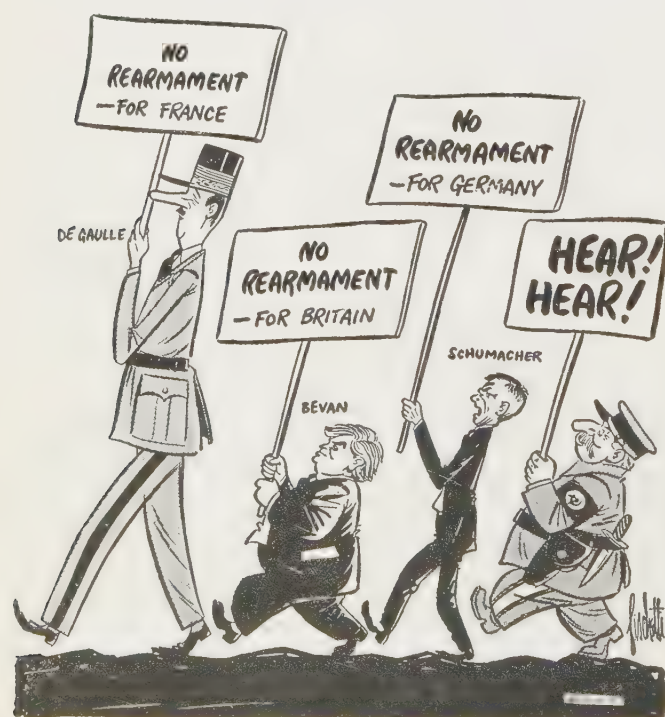 NO
REARMAMENT
—FOR FRANCE
DE GAULLE
NO
REARMAMENT
—FOR BRITAIN
BEVAN
NO
REARMAMENT
—FOR GERMANY
SCHUMACHER
HEAR!
HEAR!